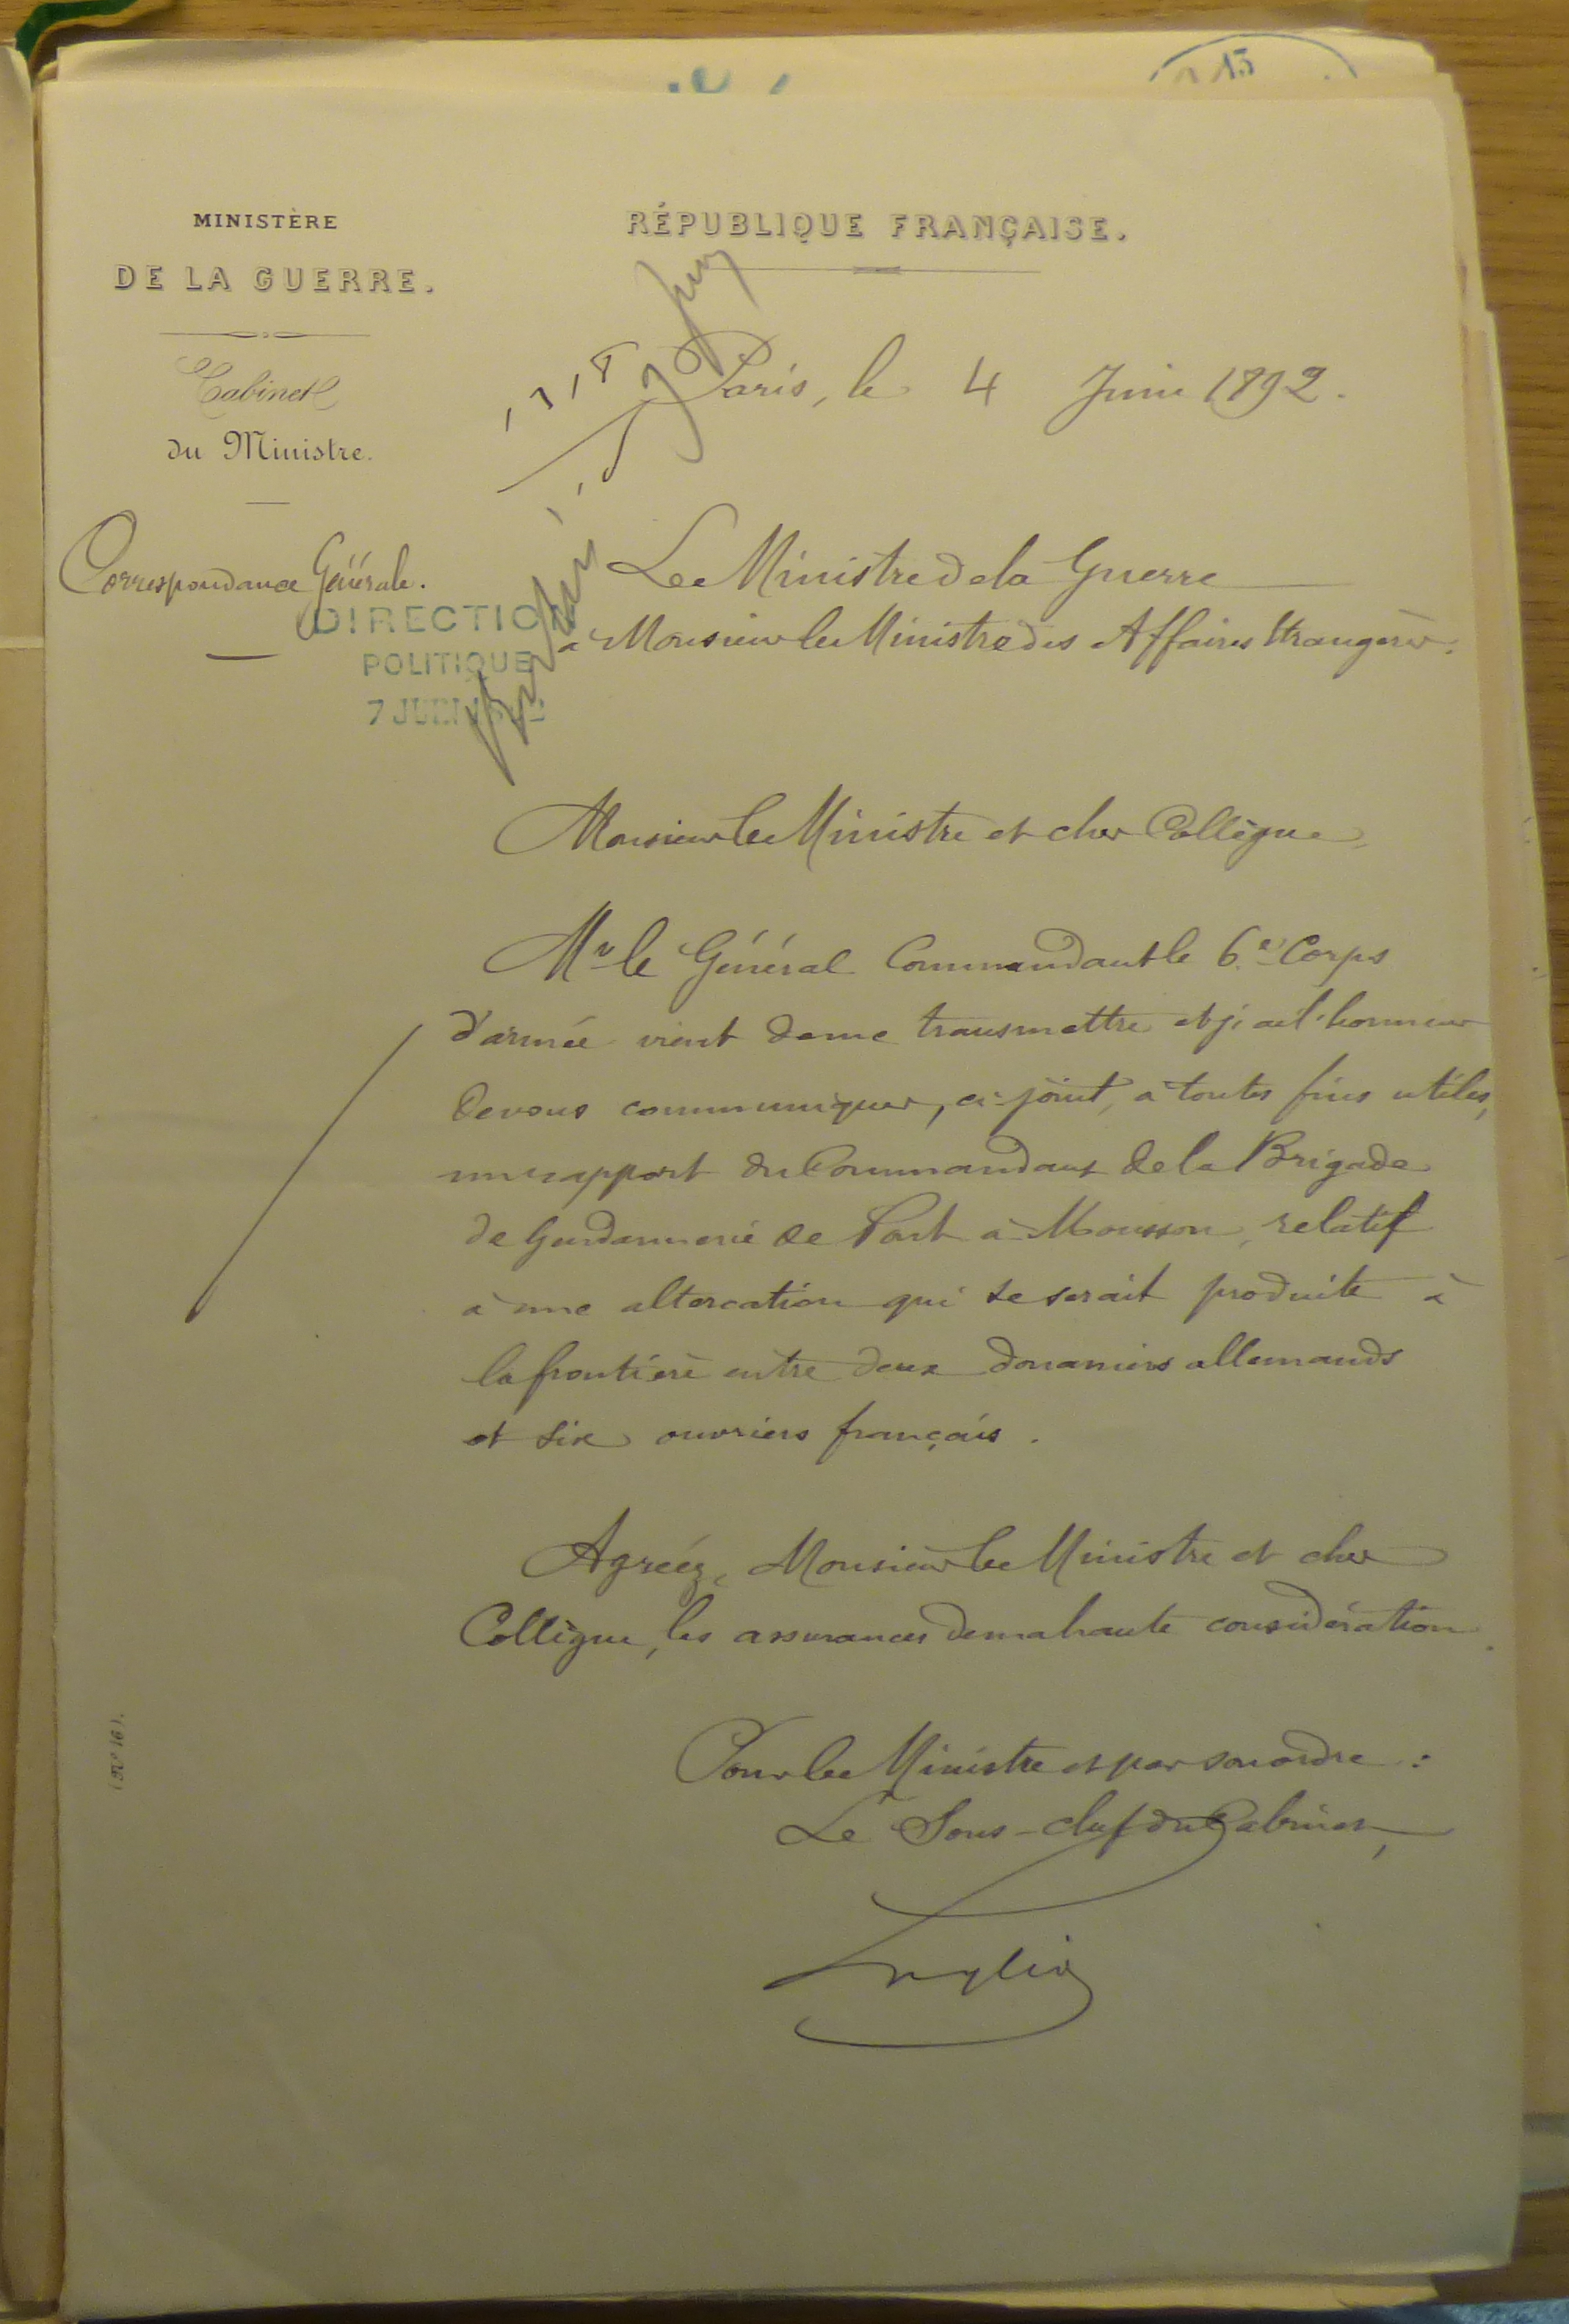 15
MINISTÈRE
DE LA GUERRE.
Cabinet
du Ministre.
Correspondance Générale.
DIRECTION
POLITIQUE
7 JUIN
RÉPUBLIQUE FRANÇAISE.
Paris, le 4 Juin 1892.
Le Ministre de la Guerre
à Monsieur le Ministre des Affaires Étrangères.
Monsieur le Ministre et cher Collègue,
Mr le Général Commandant le 6e Corps
d'armée vient de me transmettre et j'ai l'honneur
de vous communiquer, ci-joint, à toutes fins utiles,
un rapport du Commandant de la Brigade
de Gendarmerie de Pont à Mousson, relatif
à une altercation qui se serait produite à
la frontière entre deux douaniers allemands
et six ouvriers français.
Agréez, Monsieur le Ministre et cher
Collègue, les assurances de ma haute considération.
Pour le Ministre et par son ordre :
Le Sous-chef du Cabinet,
(No 16).